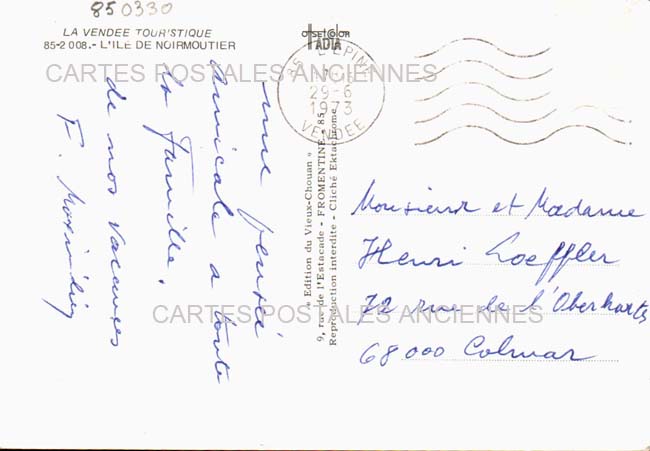 850330
LA VENDEE TOURISTIQUE
85-2 008.- L'ILE DE NOIRMOUTIER
OFFSETCOLOR
IADIA
85 L'EPINE
29-6
1973
VENDEE
CARTES POSTALES ANCIENNES
une pensée
amicale a toute
la famille.
de nos vacances
F.
« Edition du Vieux-Chouan »
9, rue de l'Estacade - FROMENTINE - 85
Reproduction interdite - Cliché Ektachrome
Monsieur et Madame
Henri Loeffler
72 rue de l'Oberharts
68000 Colmar
CARTES POSTALES ANCIENNES